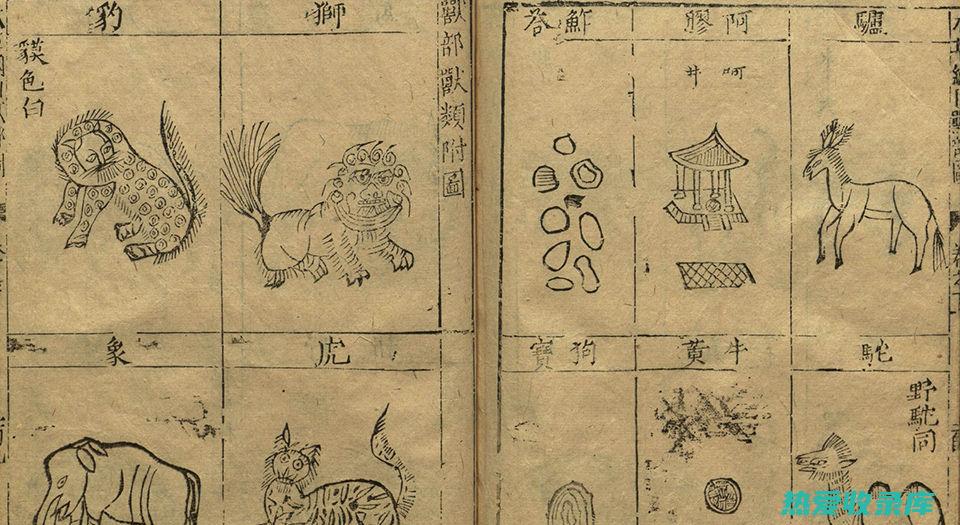 驢
阿膠
鮓荅
阿井
駝
牛黃
狗寶
野駝同
獸部獸類附圖
獅
豹
貘色白
虎
象
热爱收录库